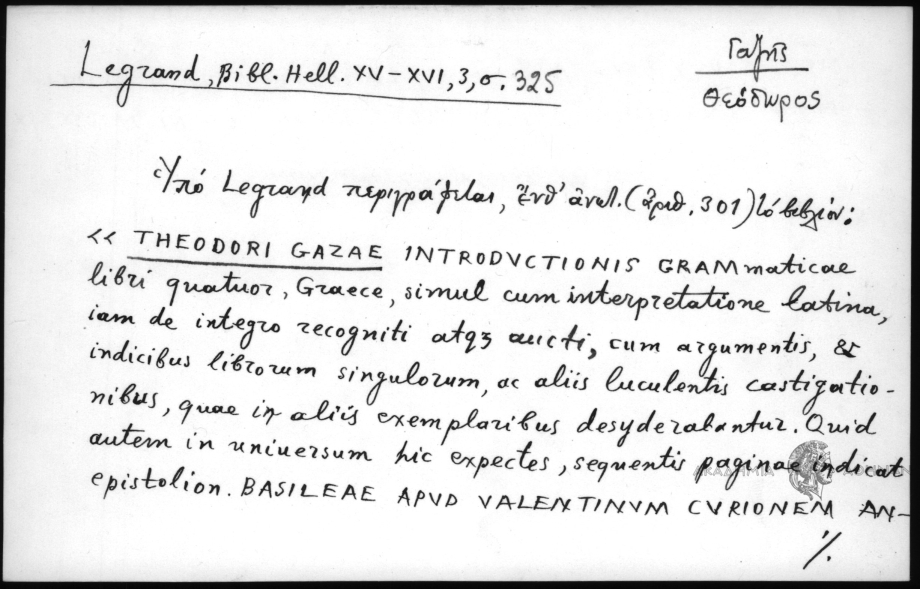 Legrand, Βibl. Hell. XV-XVI, 3, σ. 325
Γαζῆς
Θεόδωρος
Ὑπό Legrand περιγράφεται, ἔνθ' ἀνωτ. (ἀριθ. 301) τό βιβλίον:
<< THEODORI GAZAE INTRODVCTIONIS GRAMmaticae
libri quatuor, Graece, simul cum interpretatione latina,
iam de integro recogniti atqз aucti, cum argumentis, &
indicibus librorum singulorum, ac aliis luculentis castigatio-
nibus, quae in aliis exemplaribus desyderabantur. Quid
autem in uniuersum hic expectes, sequentis paginae indicat
epistolion. BASILEAE APVD VALENTINVM CVRIONEM AN-
./.